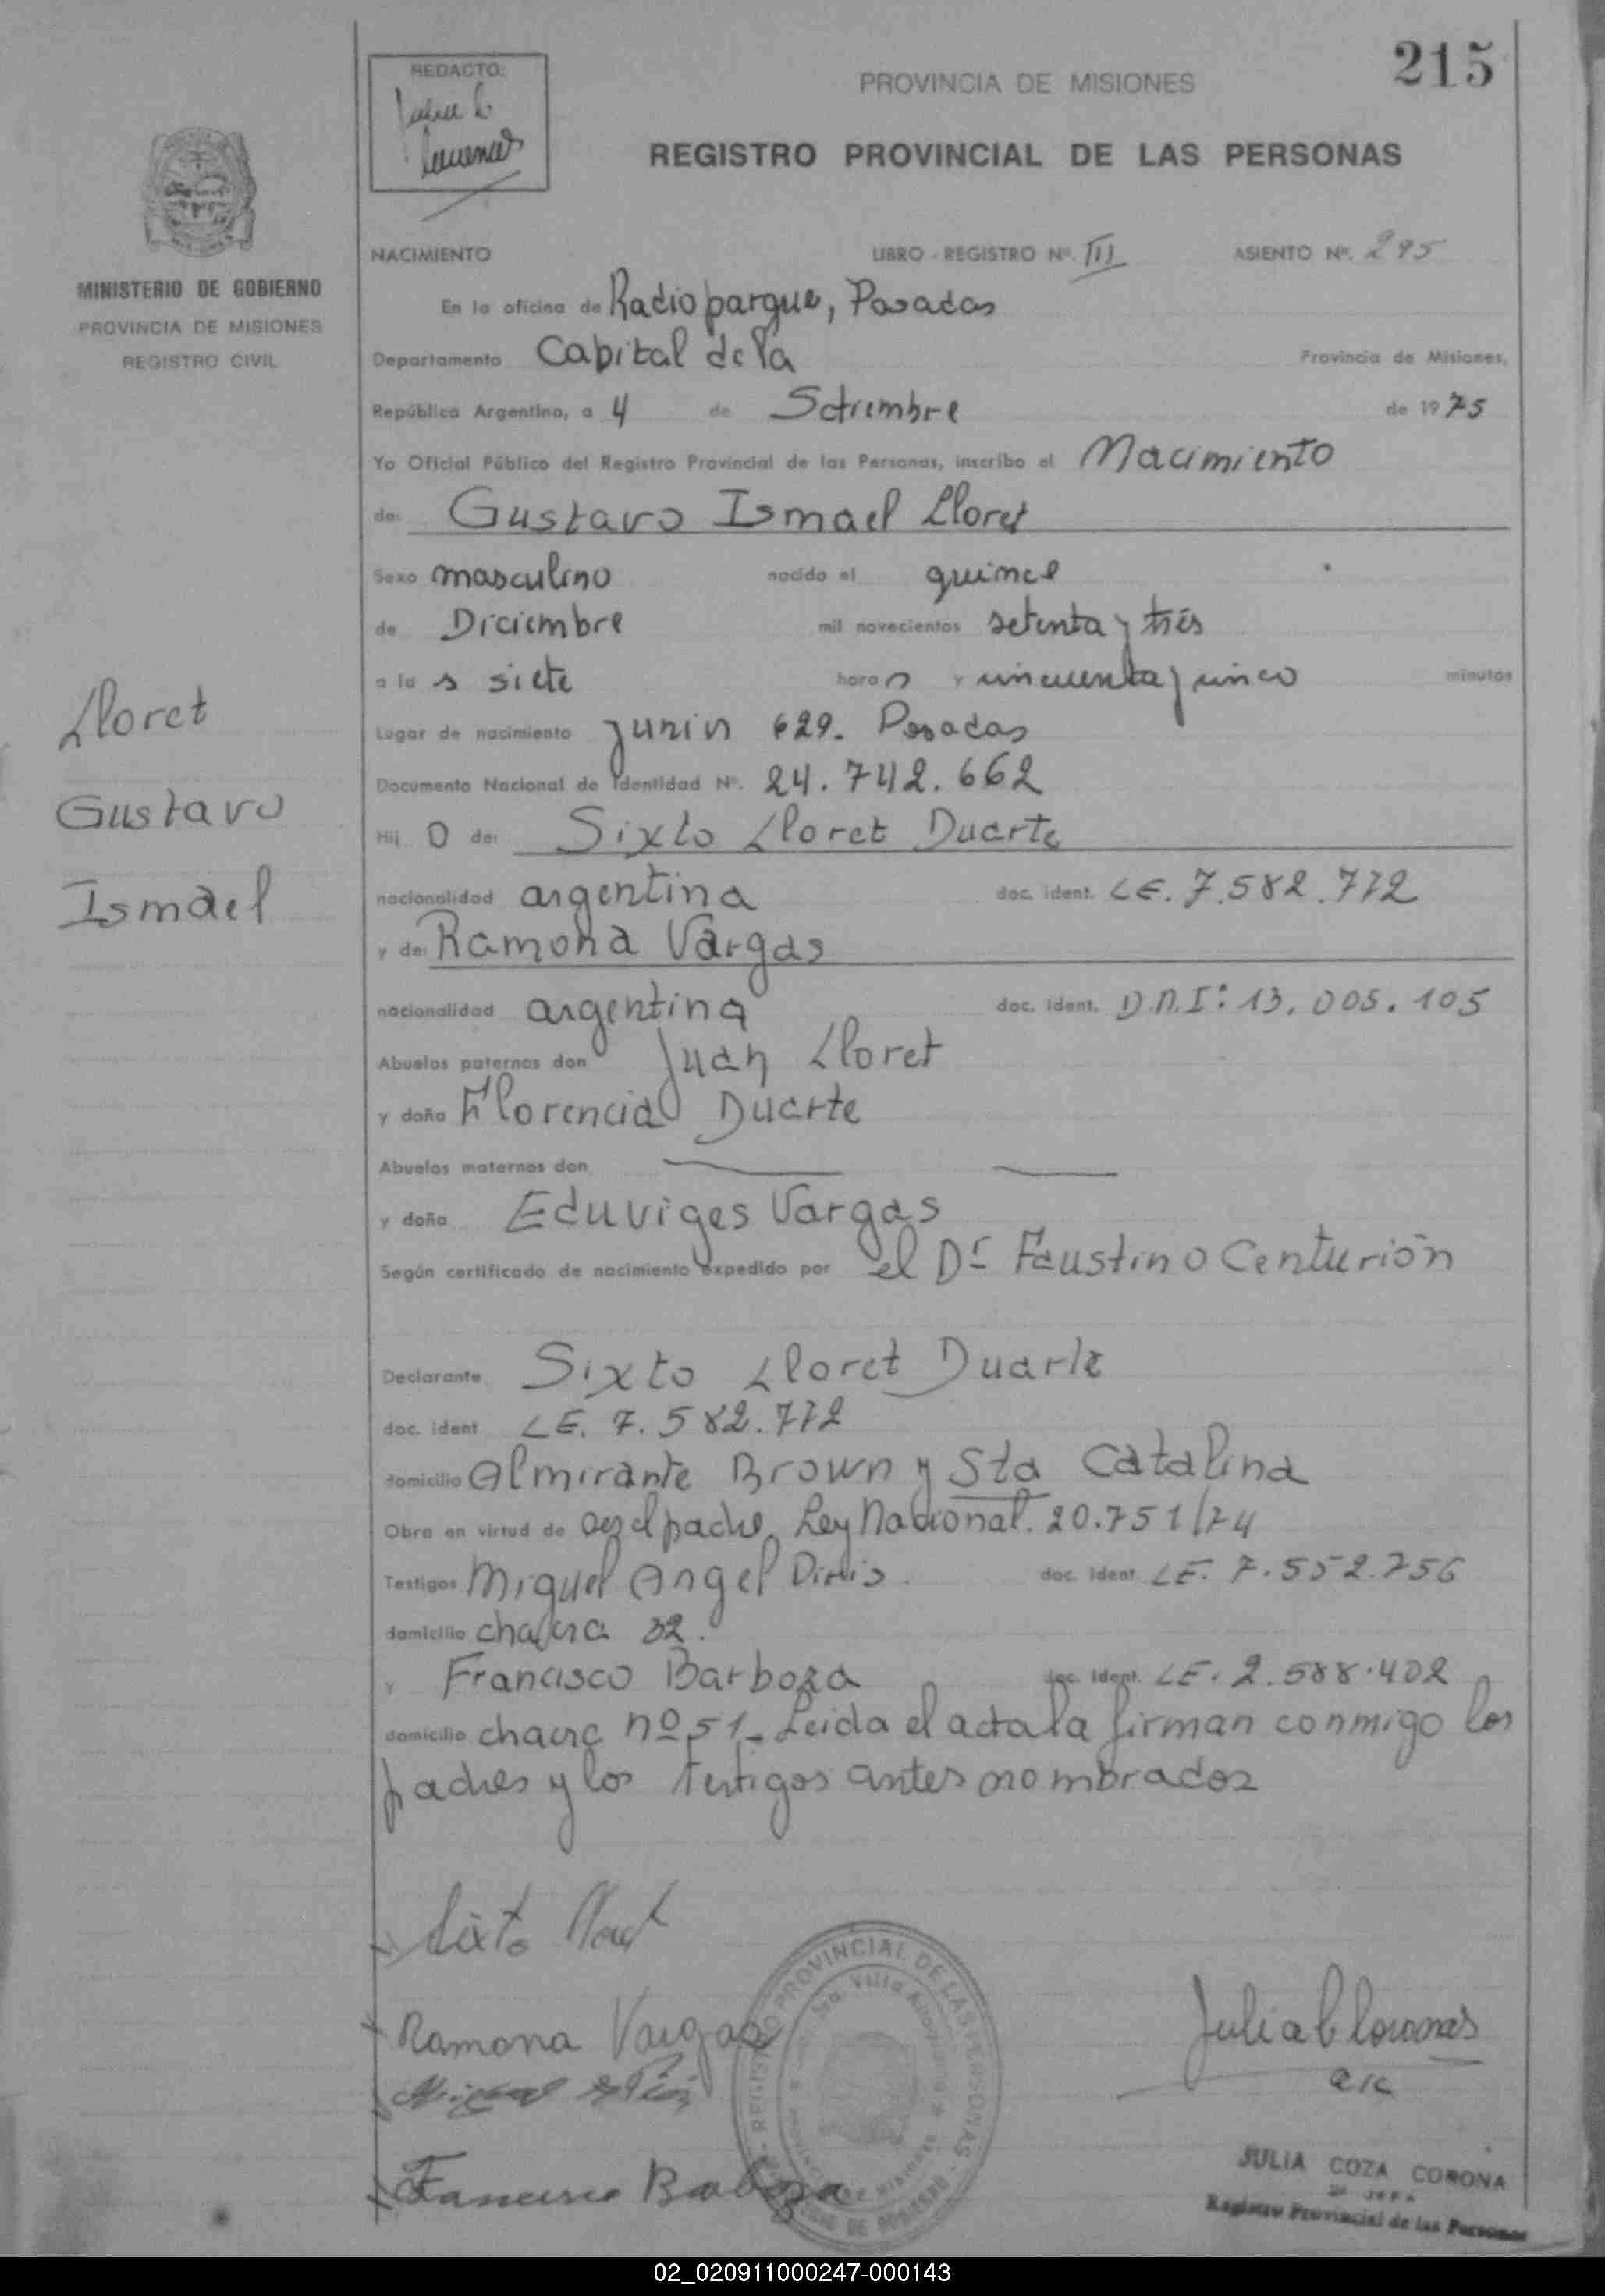 215
REDACTO:
PROVINCIA DE MISIONES
REGISTRO PROVINCIAL DE LAS PERSONAS
MINISTERIO DE GOBIERNO
PROVINCIA DE MISIONES
REGISTRO CIVIL
NACIMIENTO LIBRO - REGISTRO Nº. III ASIENTO Nº. 295
En la oficina de Radioparque, Posadas
Departamento Capital de la Provincia de Misiones,
República Argentina, a 4 de Setiembre de 1975
Yo Oficial Público del Registro Provincial de las Personas, inscribo el Nacimiento
de: Gustavo Ismael Lloret
Sexo masculino nacido el quince
de Diciembre mil novecientos setenta y trés
a la s siete hora s y cincuenta y cinco minutos
Lugar de nacimiento Junin 629. Posadas
Documento Nacional de Identidad Nº. 24.742.662
Hij o de: Sixto Lloret Duarte
nacionalidad argentina doc. ident. LE. 7.582.772
y de: Ramona Vargas
nacionalidad argentina doc. ident. D.N.I: 13.005.105
Abuelos paternos don Juan Lloret
y doña Florencia Duarte
Abuelos maternos don
y doña Eduviges Vargas
Según certificado de nacimiento expedido por el Dr Faustino Centurión
Declarante Sixto Lloret Duarte
doc. ident LE. 7.582.772
domicilio Almirante Brown y Sta Catalina
Obra en virtud de ser el padre. Ley Nacional. 20.751/74
Testigos Miguel Angel doc. ident LE. 7.552.756
domicilio chacra 32.
y Francisco Barboza doc. ident. LE. 2.588.402
domicilio chacra nº 51_ Leida el acta la firman conmigo los
padres y los testigos antes nombrados
Lloret
Gustavo
Ismael
Sixto Lloret
Ramona Vargas
Francisco Barboza
REGISTRO PROVINCIAL DE LAS PERSONAS
JULIA COZA CORONA
2ª JEFA
Registro Provincial de las Personas
02_020911000247-000143